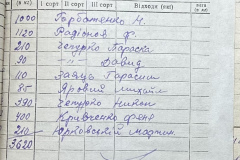 І сорт ІІ сорт ІІІ сорт Відходи (кг)
1000 Горбатенко М.
1120 Радіонов Ф.
210 Чепурко Параска
90 -"- Давид
110 Заяць Гарасим
85 Яровий Михайло
390 Чепурко Никон
400 Кривченко Феня
210 Юрковський Мартин
3620